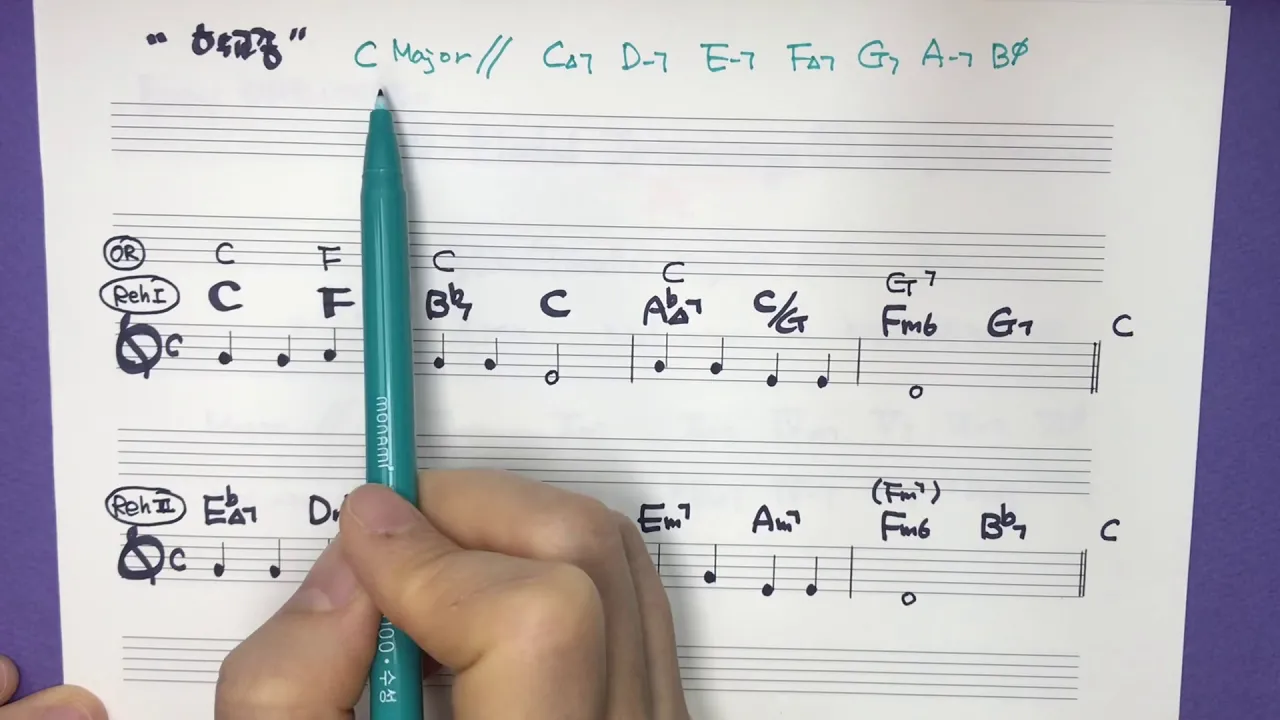 "학교종" C Major// C△7 D-7 E-7 F△7 G7 A-7 Bø
OR C F C C G7
Reh I C F B♭7 C A♭△7 C/G Fm6 G7 C
C
(Fm7)
Reh II E♭△7 Em7 Am7 Fm6 B♭7 C
C
monami
100 • 수성